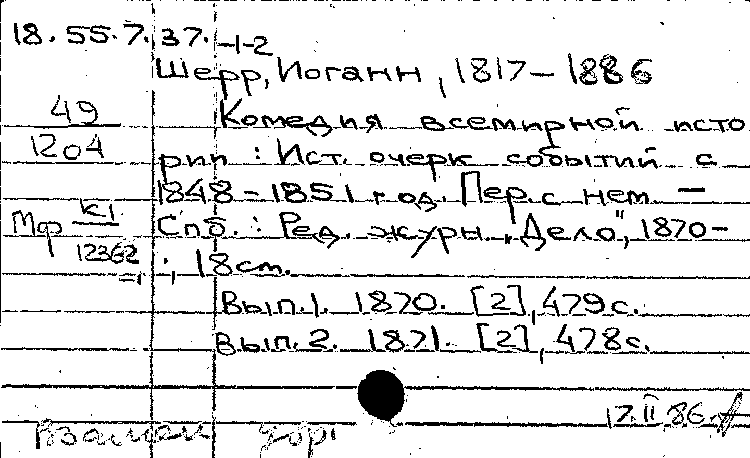 18.55.7.37.-1-2
Шерр, Иоганн, 1817-1886
49
1204
Комедия всемирной исто
рии : Ист. очерк событий с
1848-1851 год. Пер. с нем. —
Мф К1
12362
-1
Спб. : Ред. журн. „Дело", 1870-
. ; 18см.
Вып.1. 1870. [2], 479с.
Вып.2. 1871. [2], 478с.
17.II.86.
Взамен